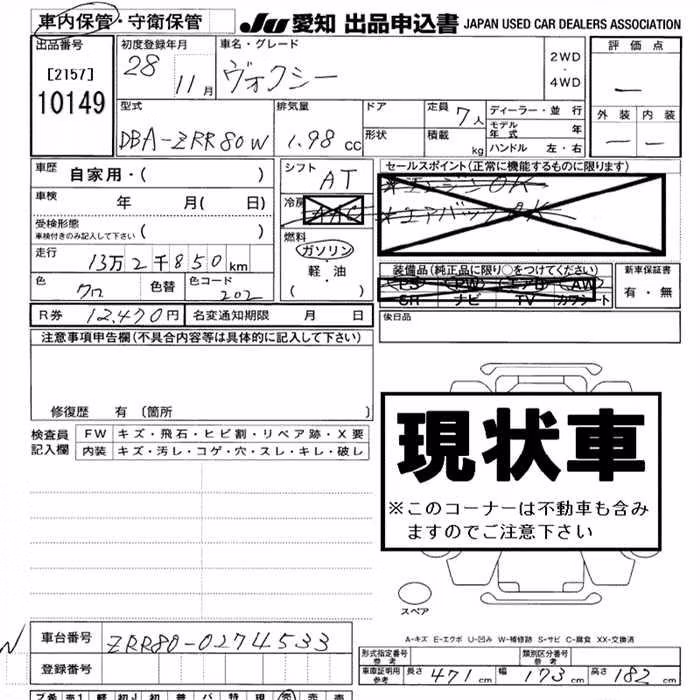 車内保管・守衛保管
JU 愛知 出品申込書 JAPAN USED CAR DEALERS ASSOCIATION
出品番号 初度登録年月 車名・グレード 評価点
[2157] 28 11月 ヴォクシー 2WD・4WD ー
10149
型式 排気量 ドア 定員 7人 ディーラー・並行 外装 内装
モデル年式 年
DBA-ZRR80W 1.98cc 形状 積載 kg ハンドル 左・右 ー ー
車歴 自家用・( ) シフト AT セールスポイント(正常に機能するものに限ります)
車検 年 月( 日) 冷房 AAC *エンジンOK
*エアバックOK
受検形態
車検付きのみ記入して下さい ( ) 燃料
走行 13万2千850km ガソリン
軽・油
( )
装備品(純正品に限り○をつけてください) 新車保証書
PS PW エアB AW 有・無
SR ナビ TV カワシート
色 クロ 色替 色コード 202
R券 12,470円 名変通知期限 月 日 後日品
注意事項申告欄(不具合内容等は具体的に記入して下さい)
修復歴 有 〔箇所 〕
検査員 FW キズ・飛石・ヒビ割・リペア跡・X要
記入欄 内装 キズ・汚レ・コゲ・穴・スレ・キレ・破レ
現状車
※このコーナーは不動車も含み
ますのでご注意下さい
スペア
A-キズ E-エクボ U-凹み W-補修跡 S-サビ C-腐食 XX-交換済
車台番号 ZRR80-0274533
登録番号
形式指定番号 参考 類別区分番号 参考
車庫証明用 参考 長さ 471cm 幅 173cm 高さ 182cm